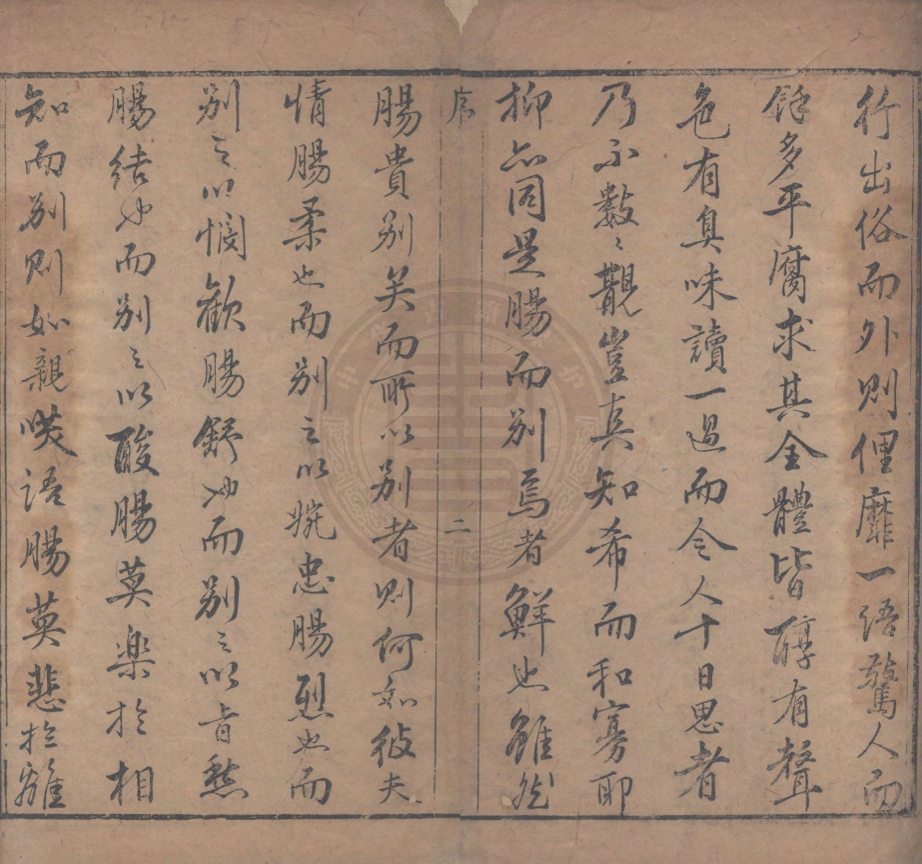 行出俗而外則俚靡一語驚人而
餘多平腐求其全體皆醇有聲
色有臭味讀一過而令人十日思者
乃不數數覯豈真知希而和寡耶
抑亦同是腸而別焉者鮮也雖然
序
二
腸貴別矣而所以別者則何如彼夫
情腸柔也而別之以婉忠腸烈也而
別之以惻歡腸舒也而別之以
腸結也而別之以酸腸莫樂於相
知而別則如親咲語腸莫悲於離